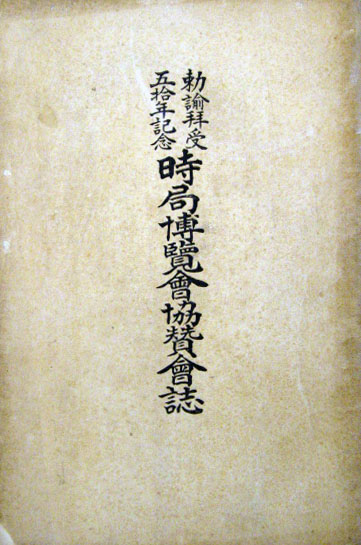 勅諭拜受
五拾年記念
時局博覽會協賛會誌